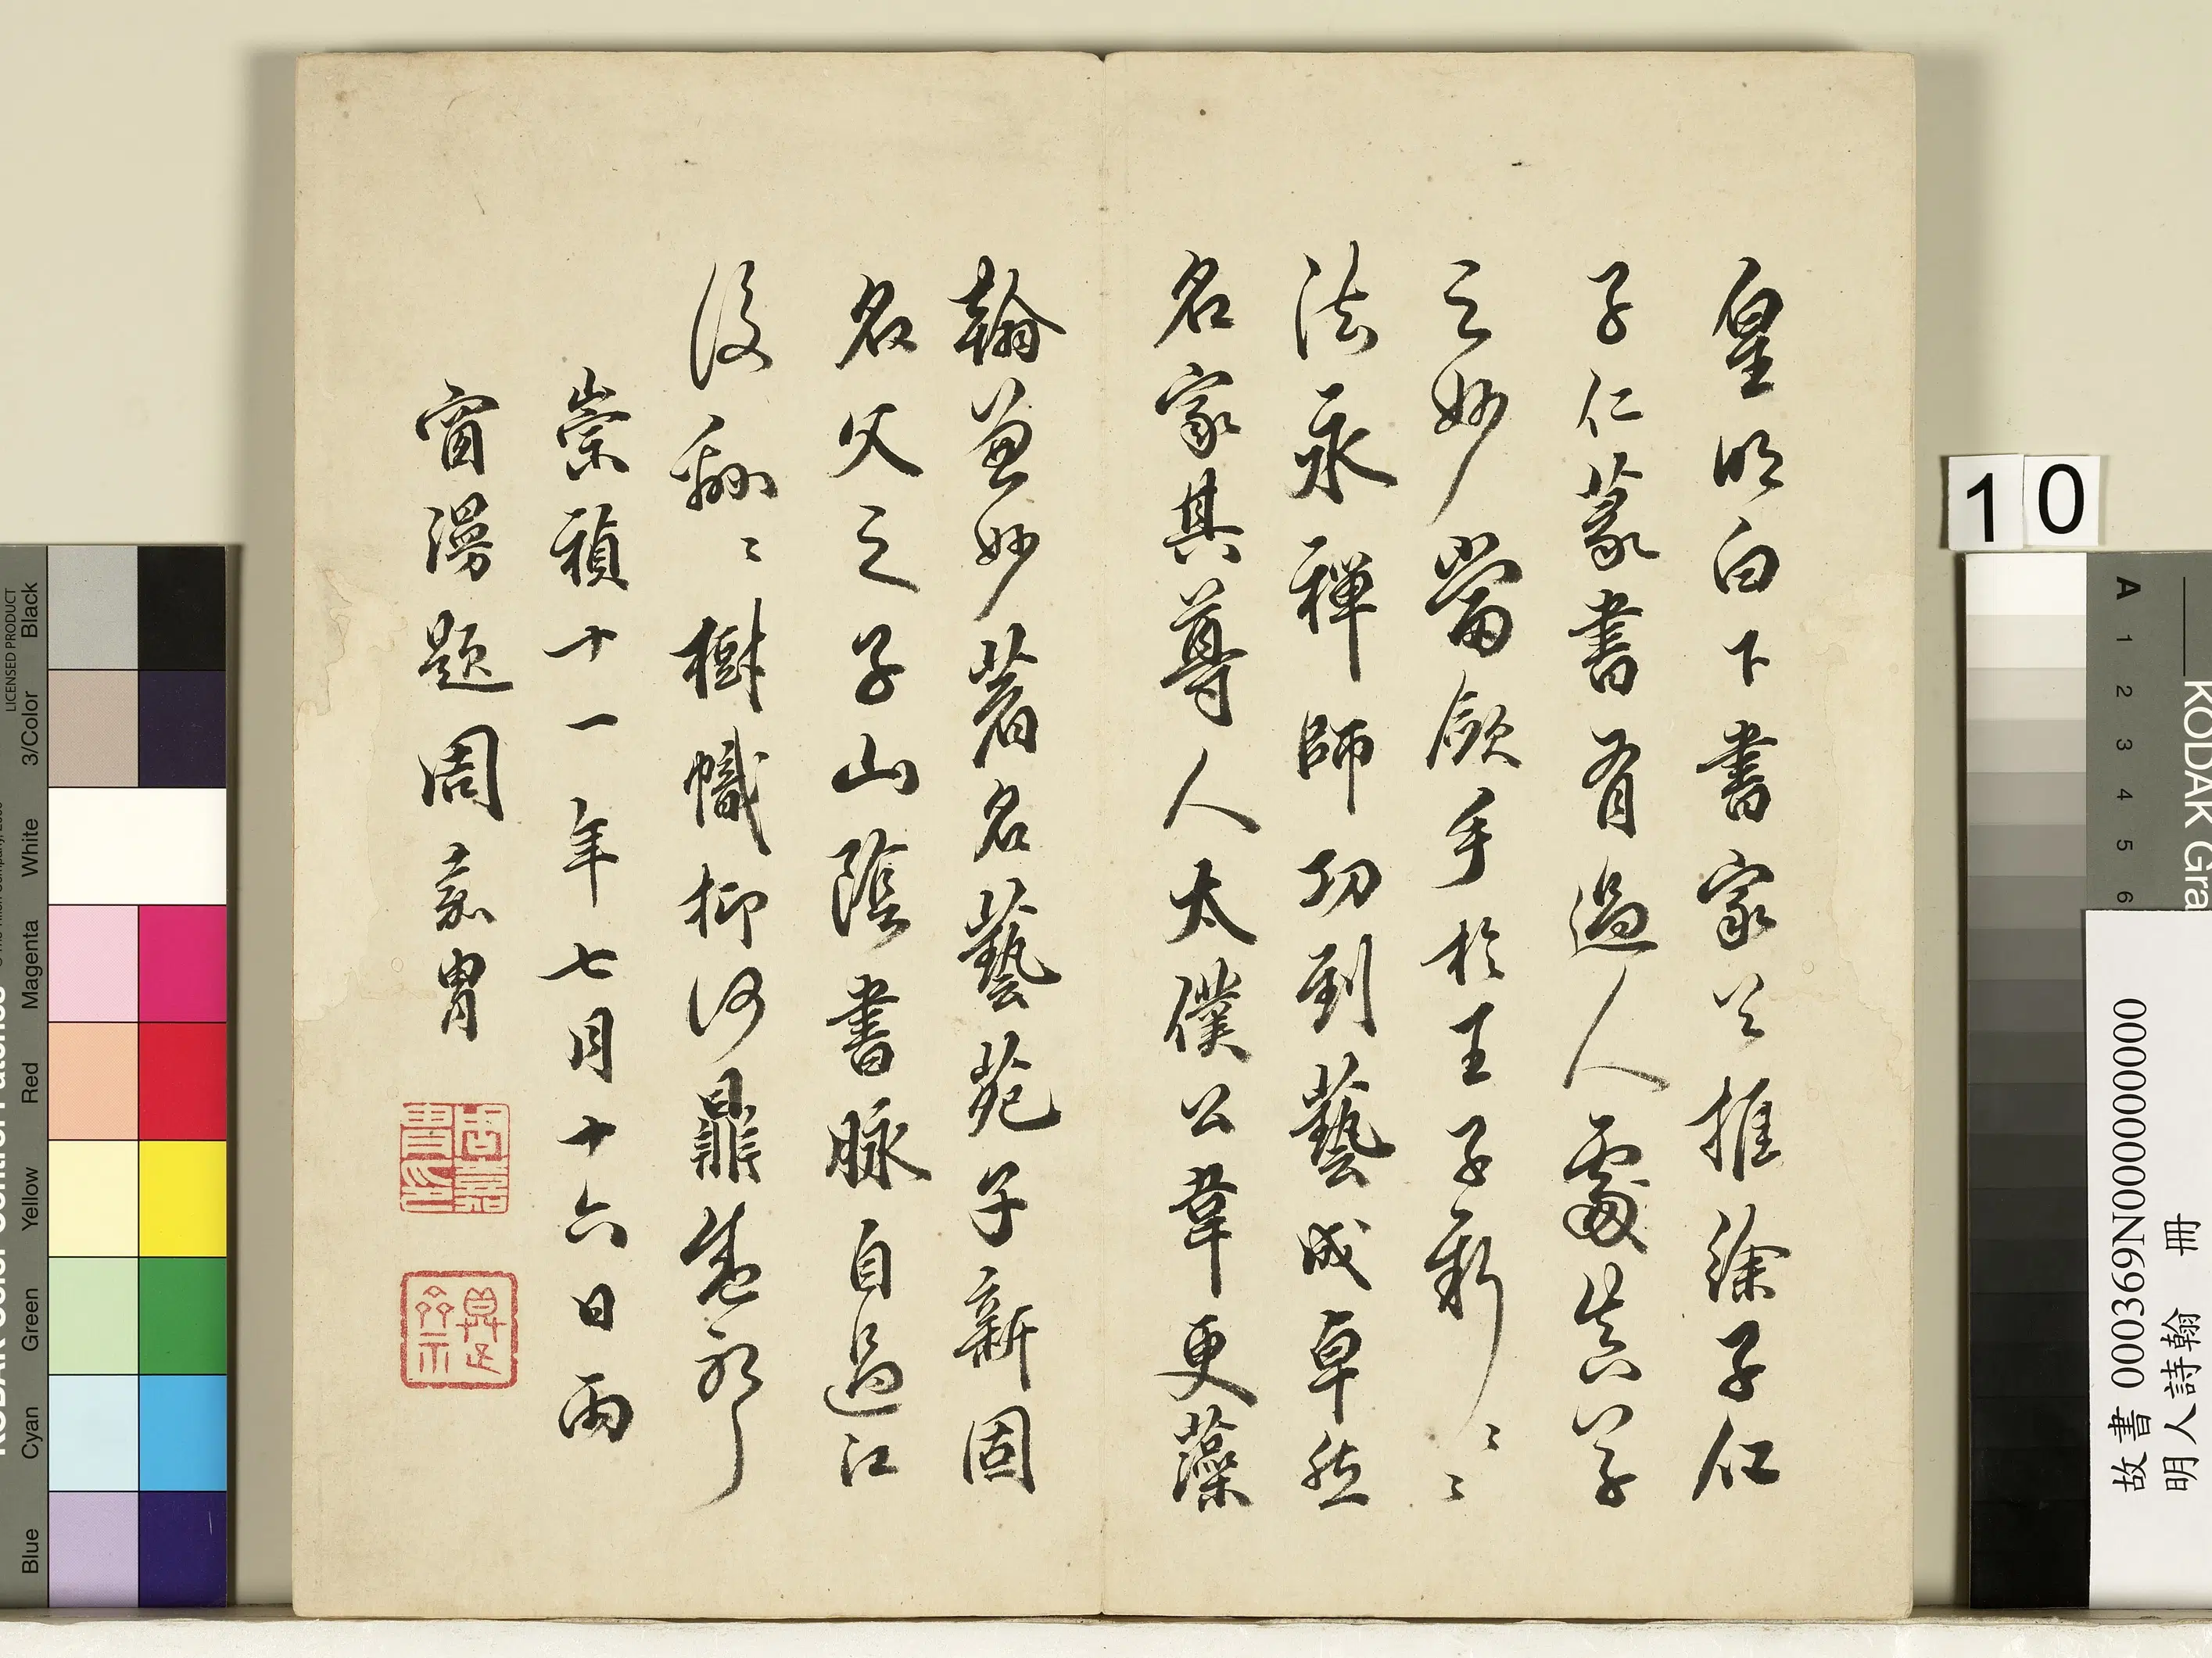 皇明白下書家必推徐子仁
子仁篆書有過人處其真草
之妙當歛手於王子新〻〻
法永禪師功到藝成卓然
名家其尊人太僕公韋更藻
翰兼妙著名藝苑子新固
名父之子山陰書脉自過江
後翩〻樹幟抑何鼎盛耶
崇禎十一年七月十六日雨
窗漫題周嘉胄
周嘉
胄印
10
故書 000369N000000000
明人詩翰 冊
KODAK Gra
A 1 2 3 4 5 6
LICENSED PRODUCT
Black
3/Color
White
Magenta
Red
Yellow
Green
Cyan
Blue